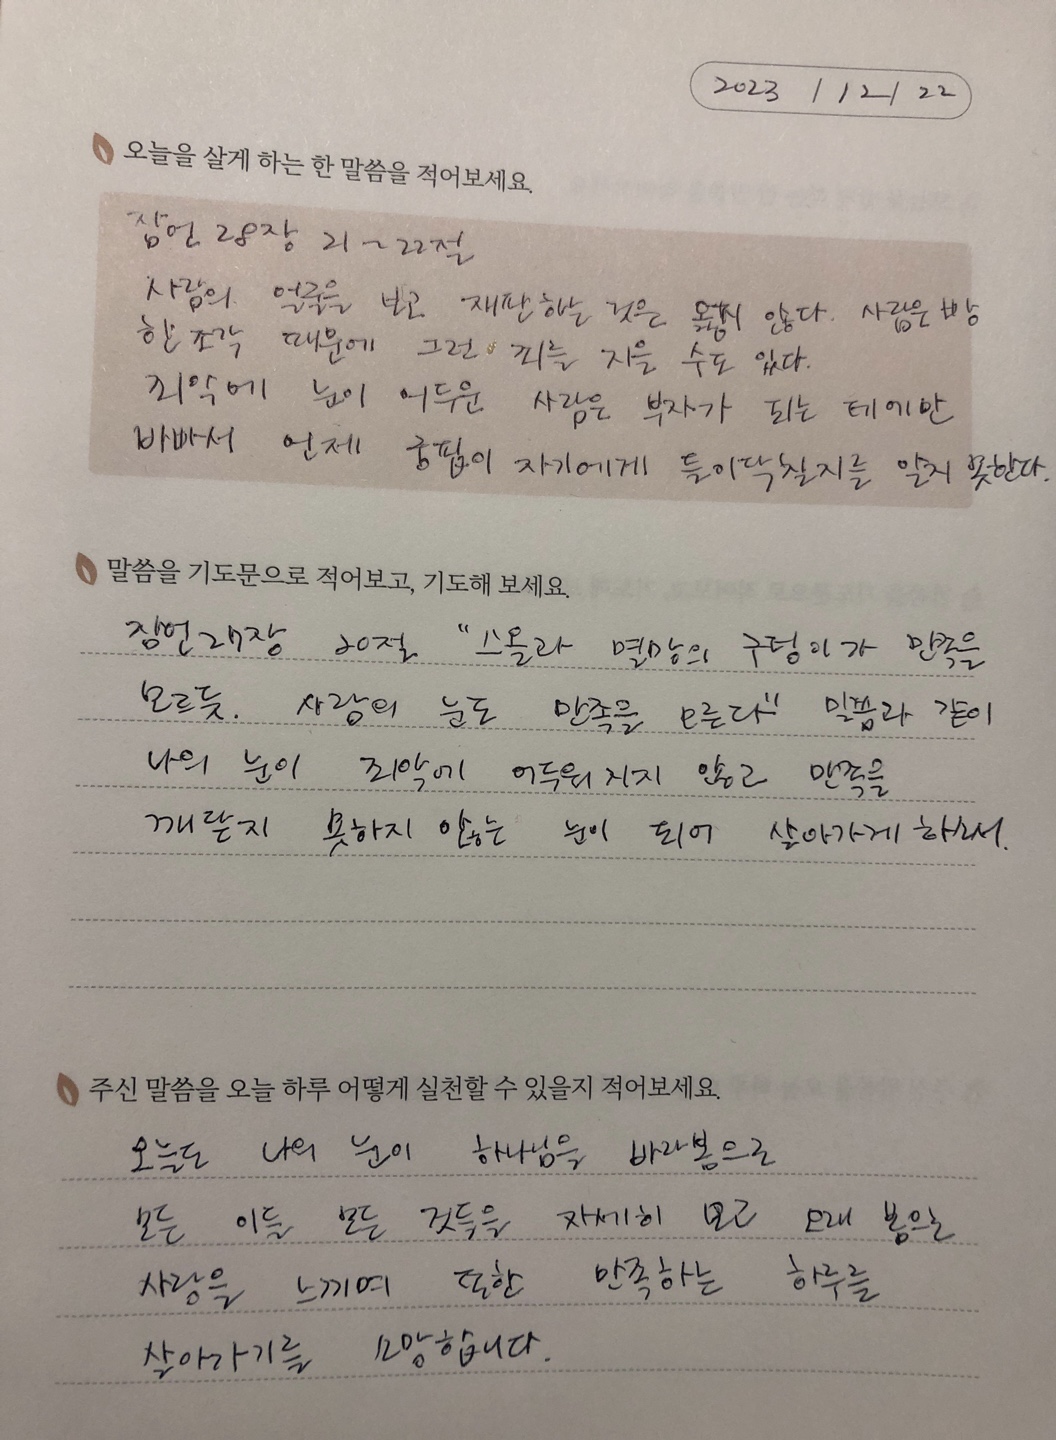 2023 / 12 / 22
오늘을 살게 하는 한 말씀을 적어보세요.
잠언 28장 21~22절
사람의 얼굴을 보고 재판하는 것은 옳지 않다. 사람은 빵
한 조각 때문에 그런 죄를 지을 수도 있다.
죄악에 눈이 어두운 사람은 부자가 되는 데에만
바빠서 언제 궁핍이 자기에게 들이닥칠지를 알지 못한다.
말씀을 기도문으로 적어보고, 기도해 보세요.
잠언 27장 20절 "스올과 멸망의 구덩이가 만족을
모르듯. 사람의 눈도 만족을 모른다" 말씀과 같이
나의 눈이 죄악에 어두워지지 않고 만족을
깨닫지 못하지 않는 눈이 되어 살아가게 하소서.
주신 말씀을 오늘 하루 어떻게 실천할 수 있을지 적어보세요.
오늘도 나의 눈이 하나님을 바라봄으로
모든 이들 모든 것들을 자세히 보고 오래 봄으로
사랑을 느끼며 또한 만족하는 하루를
살아가기를 소망합니다.